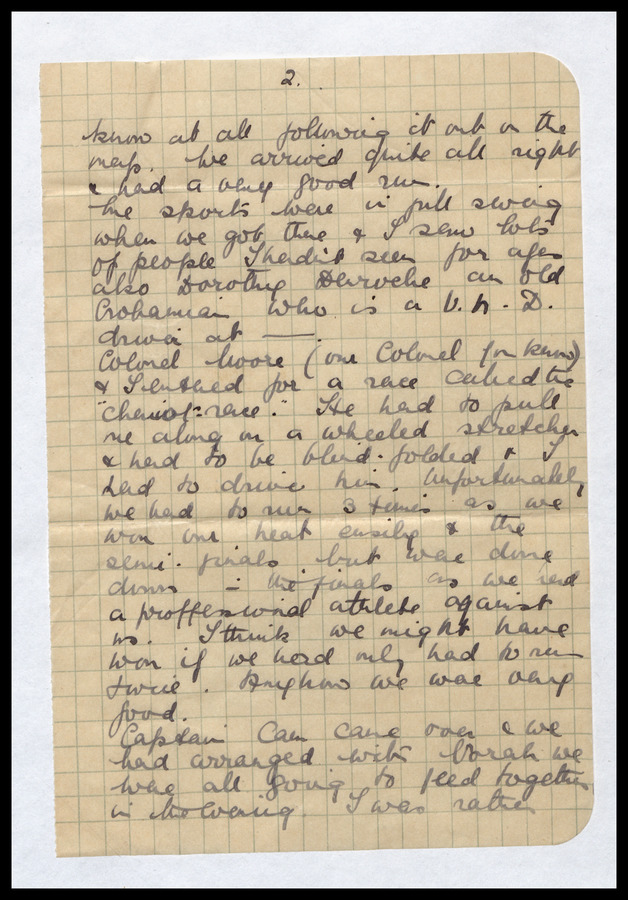 2.
know at all following it out on the
map. We arrived quite all right
& had a very good run.
The sports were in full swing
when we got there & I saw lots
of people I hadn't seen for ages
also Dorothy an old
Crohamian who is a V.A.D.
driver at ——.
Colonel Moore (our Colonel you know)
& I entered for a race called the
"chariot-race." He had to pull
me along on a wheeled stretcher
& had to be blind-folded & I
had to drive him. Unfortunately
we had to run 3 times as we
won our heat easily & the
semi-finals but were done
down in the finals as we had
a proffessional athlete against
us. I think we might have
won if we had only had to run
twice. Anyhow we were very
good.
Captain Cam came over & we
had arranged with we
were all going to feed together
in the evening. I was rather